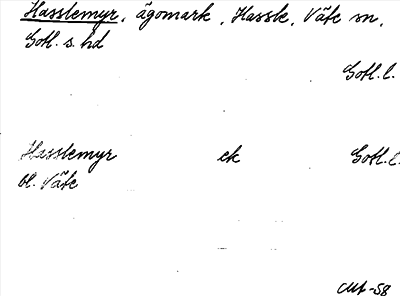 Hasslemyr, ägomark, Hassle, Väte sn,
Gotl. s. hd
Gotl. l.
Hasslemyr ek Gotl. l.
bl. Väte